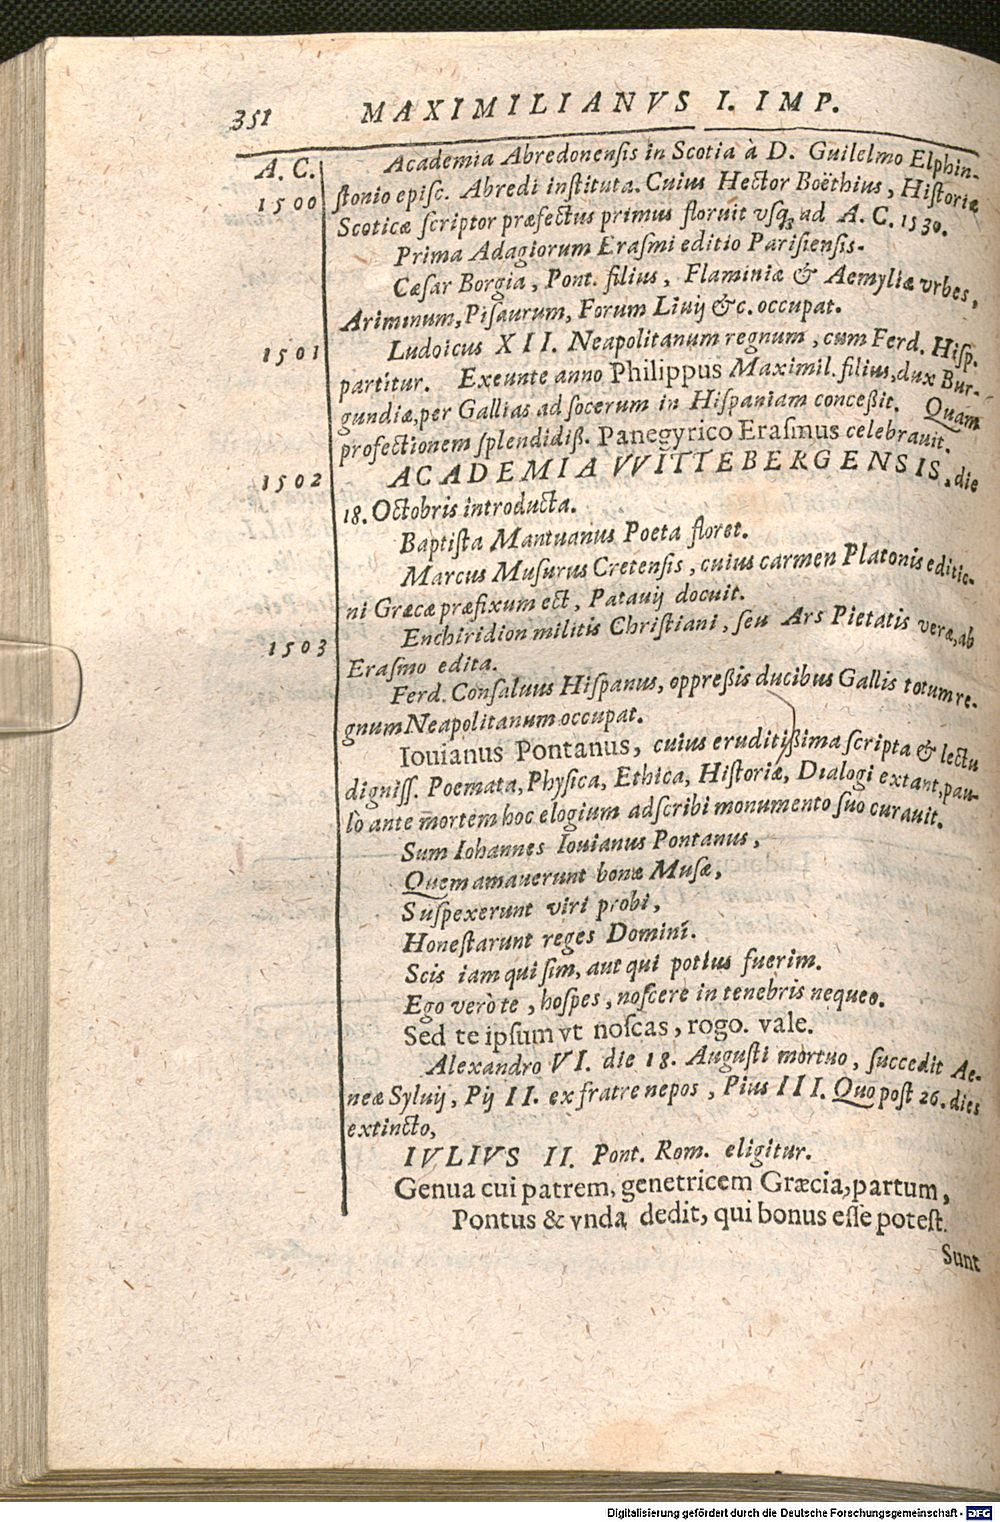 351 MAXIMILIANVS I. IMP.
A. C. Academia Abredonensis in Scotia à D. Guilelmo Elphin-
1500 ſtonio epiſc. Abredi inſtituta. Cuius Hector Boëthius, Hiſtoriæ
Scoticæ ſcriptor præfectus primus floruit vſq; ad A. C. 1530.
Prima Adagiorum Eraſmi editio Pariſienſis.
Cæſar Borgia, Pont. filius, Flaminiæ & Aemyliæ vrbes,
Ariminum, Piſaurum, Forum Liuij &c. occupat.
1501 Ludoicus XII. Neapolitanum regnum, cum Ferd. Hiſp.
partitur. Exeunte anno Philippus Maximil. filius, dux Bur-
gundiæ, per Gallias ad ſocerum in Hiſpaniam conceßit. Quam
profectionem ſplendidiß. Panegyrico Eraſmus celebrauit.
1502 ACADEMIA VVITTEBERGENSIS, die
18. Octobris introducta.
Baptiſta Mantuanus Poeta floret.
Marcus Muſurus Cretenſis, cuius carmen Platonis editio-
ni Græcæ præfixum eſt, Patauij docuit.
1503 Enchiridion militis Chriſtiani, ſeu Ars Pietatis veræ, ab
Eraſmo edita.
Ferd. Conſaluus Hiſpanus, oppreßis ducibus Gallis totum re-
gnum Neapolitanum occupat.
Iouianus Pontanus, cuius eruditißima ſcripta & lectu
digniſſ. Poemata, Phyſica, Ethica, Hiſtoriæ, Dialogi extant, pau-
lò ante mortem hoc elogium adſcribi monumento ſuo curauit.
Sum Iohannes Iouianus Pontanus,
Quem amauerunt bonæ Muſæ,
Suſpexerunt viri probi,
Honeſtarunt reges Domini.
Scis iam qui ſim, aut qui potius fuerim.
Ego verò te, hoſpes, noſcere in tenebris nequeo.
Sed te ipſum vt noſcas, rogo. vale.
Alexandro VI. die 18. Auguſti mortuo, ſuccedit Ae-
neæ Syluij, Pij II. ex fratre nepos, Pius III. Quo poſt 26. dies
extincto,
IVLIVS II. Pont. Rom. eligitur.
Genua cui patrem, genetricem Græcia, partum,
Pontus & vnda dedit, qui bonus eſſe poteſt.
Sunt
Digitalisierung gefördert durch die Deutsche Forschungsgemeinschaft - DFG